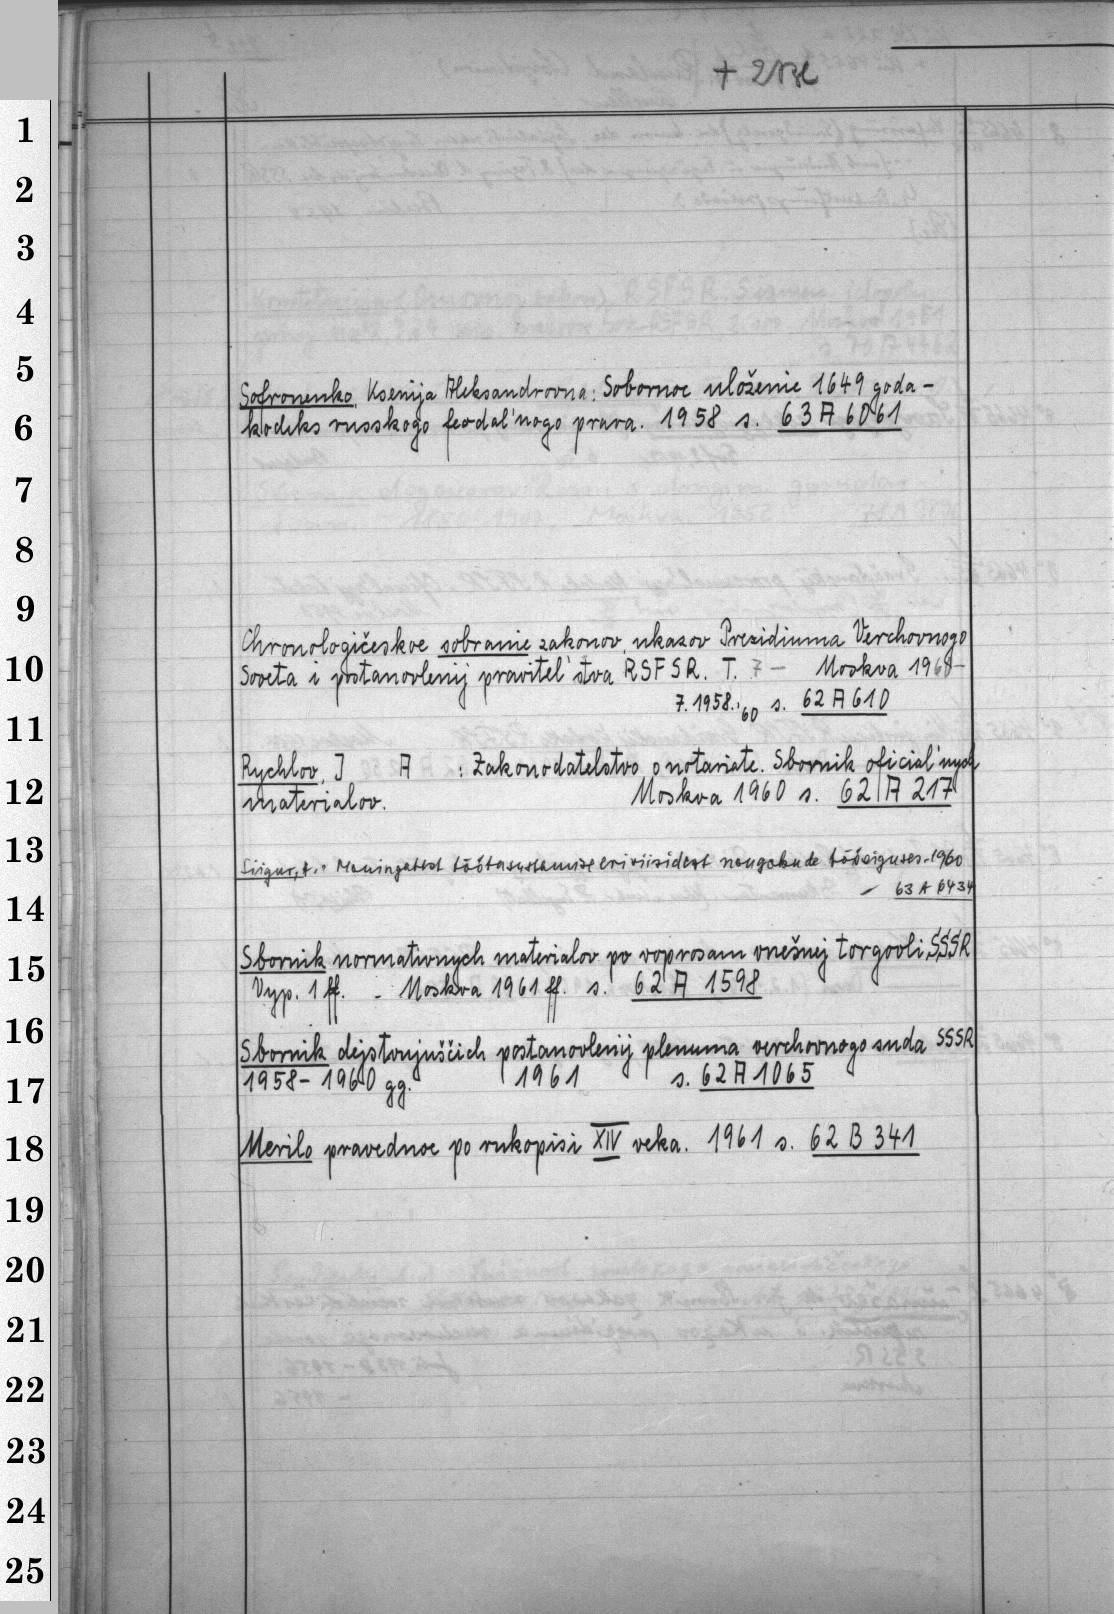 1
2
3
4
5
Sofronenko, Ksenija Aleksandrovna: Sobornoe uloženie 1649 goda -
6
kodeks russkogo feodal'nogo prava. 1958 s. 63 A 6061
7
8
9
Chronologičeskoe sobranie zakonov, ukazov Prezidiuma Verchovnogo
10
Soveta i postanovlenij pravitel'stva RSFSR. T. 7 - Moskva 1960-
11
7.1958.'60 s. 62 A 610
Rychlov, I A : Zakonodatelstvo o notariate. Sbornik oficial'nych
12
materialov. Moskva 1960 s. 62 A 217
13
töötasustamise nõugokude 1960
14
63 A 6434
15
Sbornik normativnych materialov po voprosam vnešnej torgovli SSSR
Vyp. 1 ff. - Moskva 1961 ff. s. 62 A 1598
16
Sbornik dejstvujuščich postanovlenij plenuma verchovnogo suda SSSR
17
1958-1960 gg. 1961 s. 62 A 1065
18
Merilo pravednoe po rukopisi XIV veka. 1961 s. 62 B 341
19
20
21
22
23
24
25